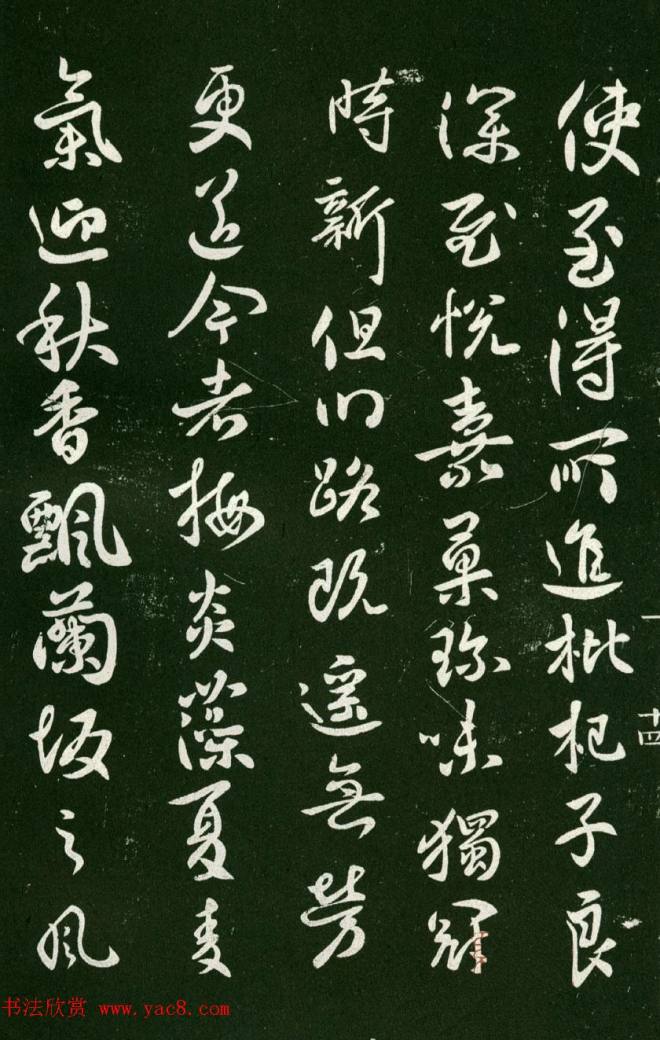 使至得所進枇杷子良
深慰悅嘉菓珎味獨冠
時新但川路既遥無勞
更送今者梅炎藻夏麦
氣迎秋香飄蘭坂之風
十四
书法欣赏 www.yac8.com